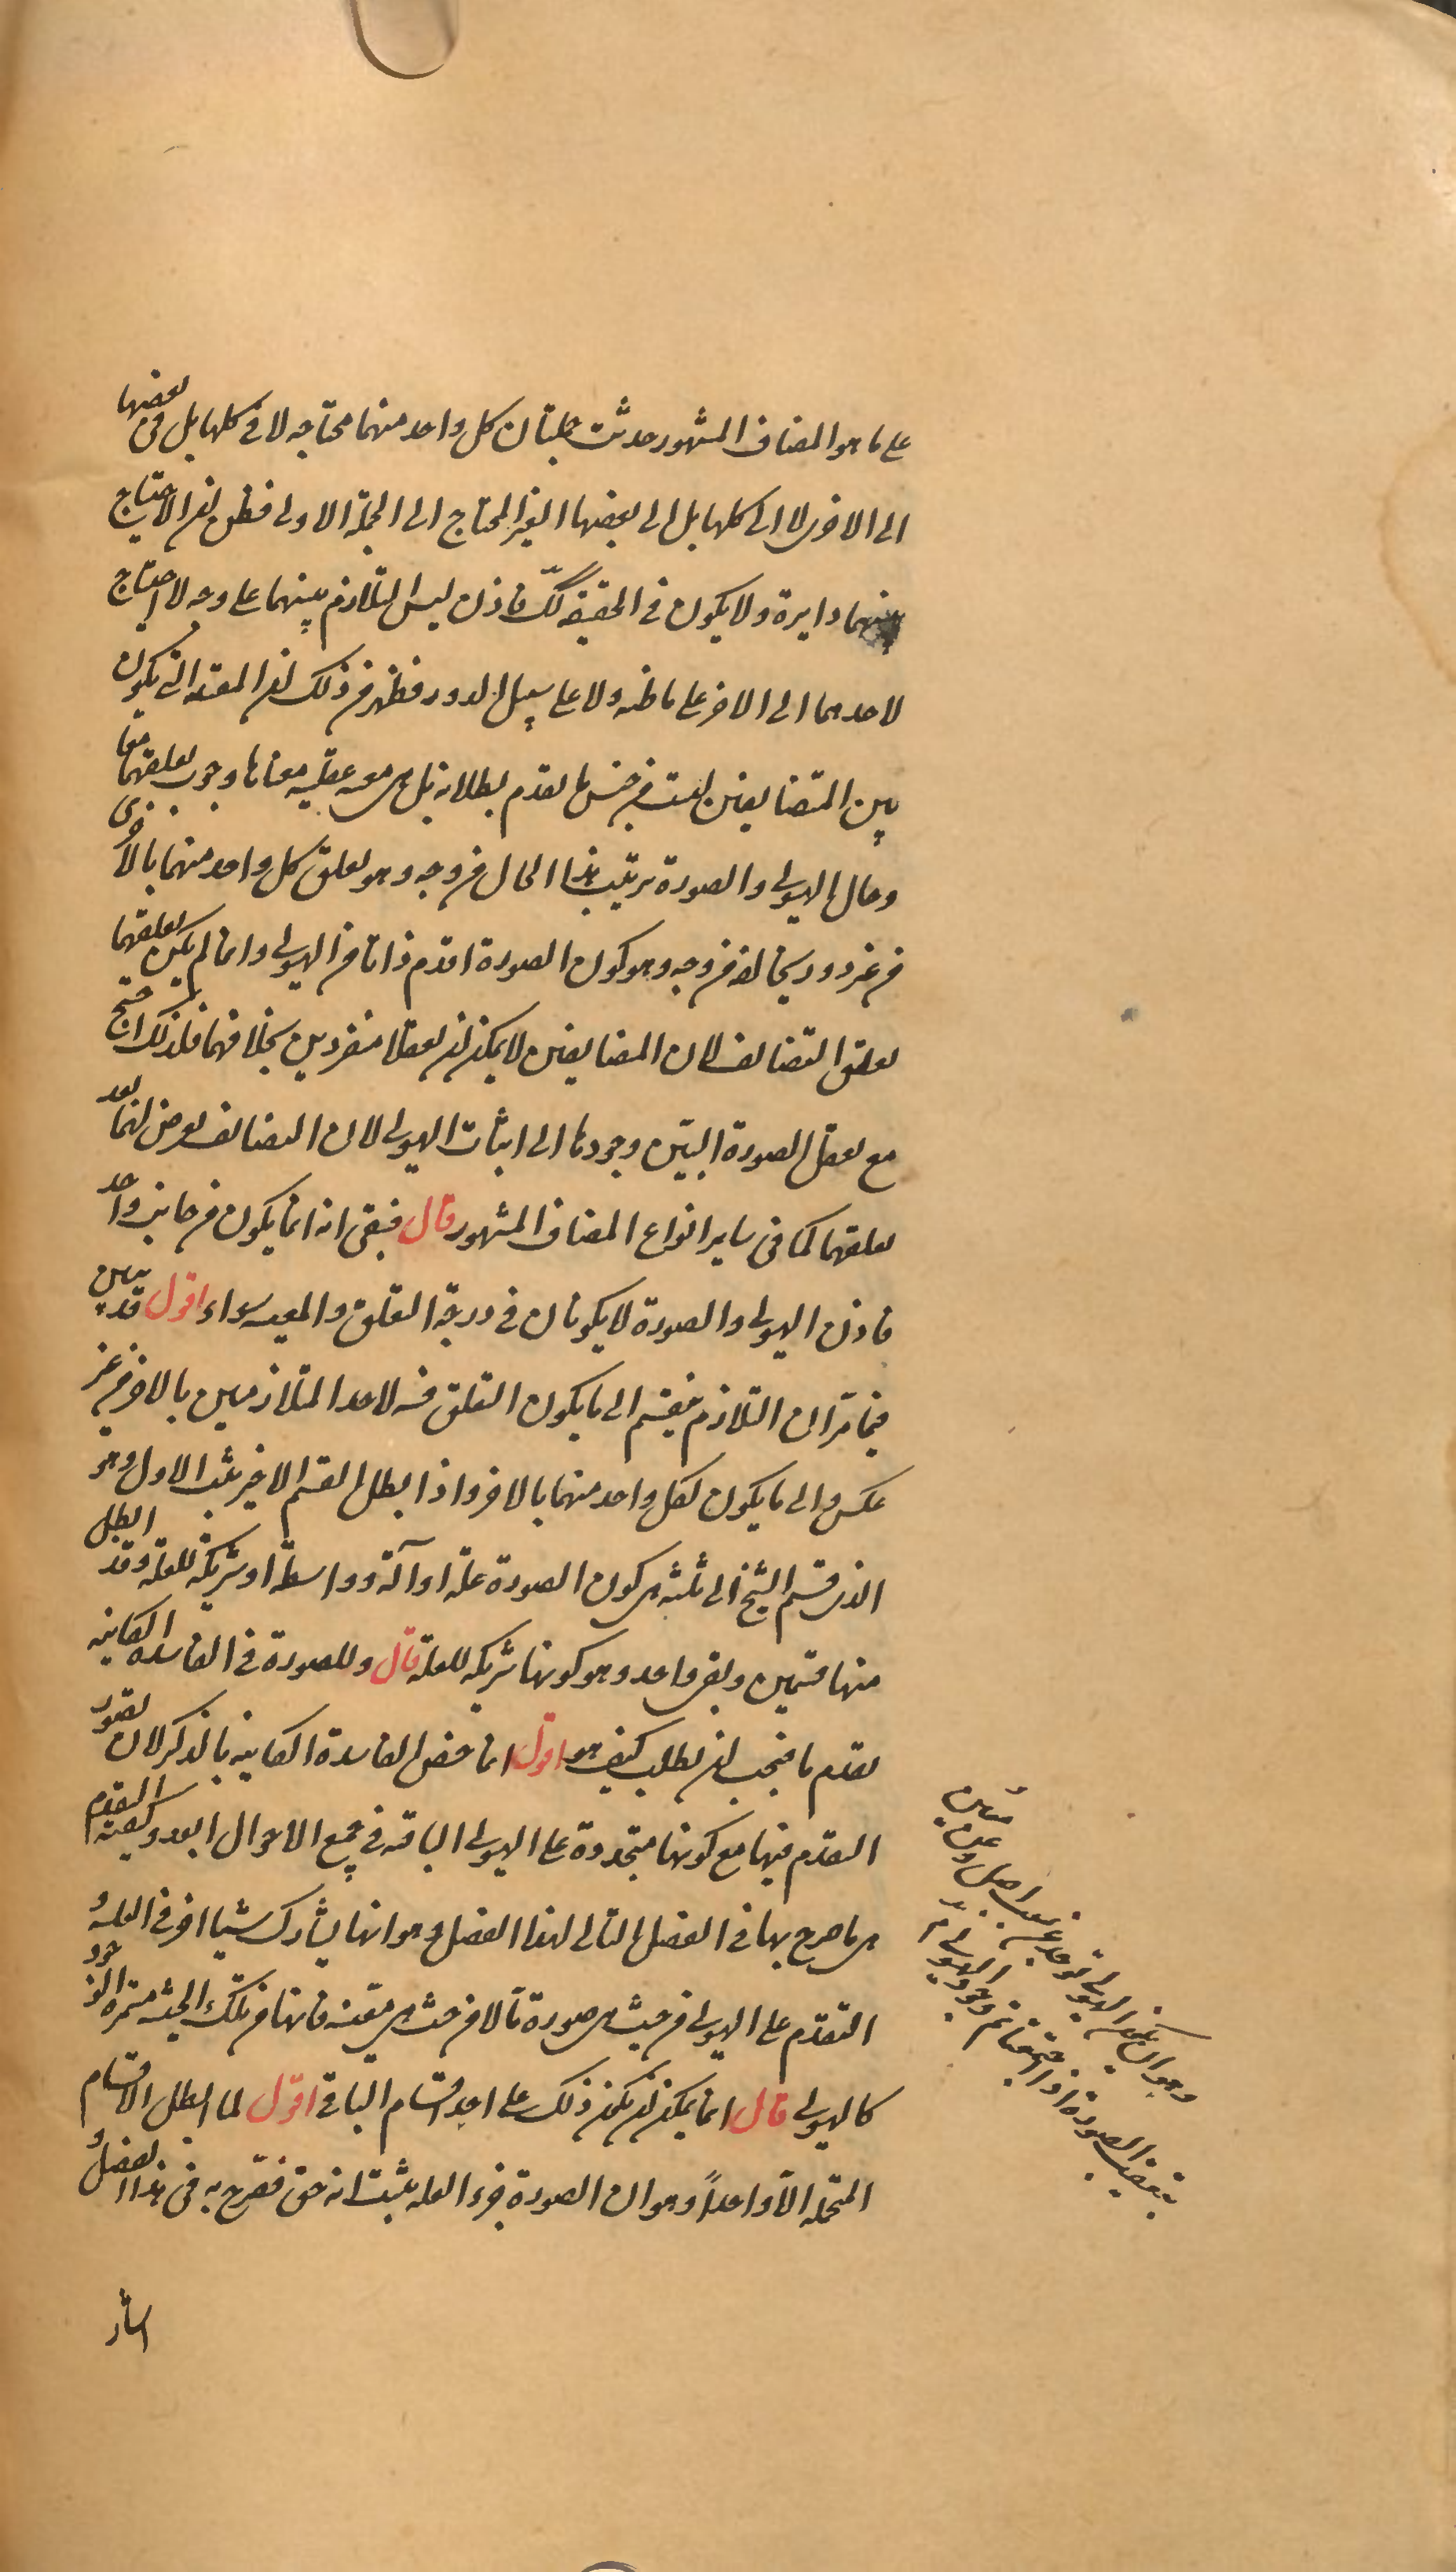 على ما هو المضاف المشهور حدثت جملتان كل واحد منهما محتاجه لا فى كلها بل فى بعضها
الى الاخرى لا الى كلها بل الى بعضها الغير المحتاج الى الجملة الاولى فظن ان الاحتياج
بينهما دايرة ولا يكون فى الحقيقة كك فاذن ليس التلازم بينهما على وجه لا احتياج
لاحدهما الى الاخر على ما ظنه ولا على سبيل الدور فظهر من ذلك ان المعية التى يكون
بين المتضايفين ليست من جنس ما تقدم بطلانه بل هى معية عقلية معناها وجوب تعلقهما معا
وحال الهيولى والصورة يرتيب هذا الحال من وجه وهو تعلق كل واحد منهما بالاخرى
من غير دور يخالفه من وجه وهو كون الصورة اقدم ذاتا من الهيولى وانما لم يكن تعلقهما
تعلق التضايف لان المضايفين لا يمكن ان يعقلا منفردين بخلافهما فلذلك احتيج
مع تعقل الصورة البين وجودها الى اثبات الهيولى لان التضايف يعرض لهما بعد
تعلقهما كما فى ساير انواع المضاف المشهور قال فبقى انه انما يكون من جانب واحد
فاذن الهيولى والصورة لا يكونان فى درجة التعلق والمعيه سواء اقول قد تبين
فيما مر ان التلازم ينقسم الى ما يكون التعلق فيه لاحد المتلازمين بالاخر من غير
عكس والى ما يكون لكل واحد منهما بالاخر واذا بطل القسم الاخير ثبت الاول وهو
الذى قسم الشيخ الى ثلثة هى كون الصورة علة او آلة وواسطة او شريكة للعلة وقد ابطل
منها قسمين وبقى واحد وهو كونها شريكه للعلة قال وللصورة فى الفاسده الكاينه
تقدم ما فيجب ان يطلب كيف هو اقول انما خص الفاسدة الكاينه بالذكر لان تصور
التقدم فيها مع كونها متجددة على الهيولى الباقيه فى جميع الاحوال ابعد وكيفية التقدم
هى ما صرح بها فى الفصل التالى لهذا الفصل وهو انها يشارك شيئا اخر فى العلية و
التقدم على الهيولى من حيث هى صورة ما لا من حيث هى متعينة فانها من تلك الحيثية متمرة الوجود
كالهيولى قال انما يمكن ان يكون ذلك على احد اقسام الباقى اقول لما ابطل الاقسام
المحتملة الا واحدا وهو ان الصورة جزء العله ثبت انه حق فصرح به فى هذا الفصل و
وهو ان يكون الهيولى توجد عن سبب اصل وعن معين
بتعقيب الصورة اذا اجتمعا تم وجود الهيولى
اشار